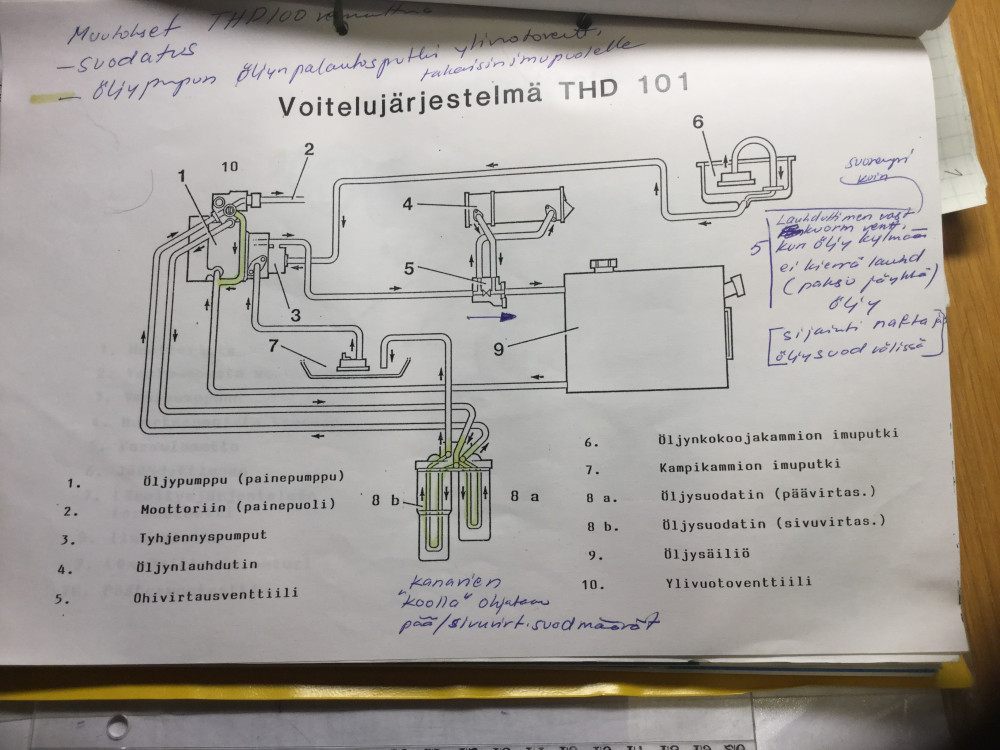 Muutokset THD100
- suodatus
- Öljypumpun öljynpalautusputki ylivuotoventt.
takaisin imupuolelle
Voitelujärjestelmä THD 101
1
10
2
3
4
5
6
7
9
8 b
8 a
suorempi
koin
Lauhduttimen vast
kuorm ventt.
5 kun öljy kylmää
ei kierrä lauhd
(paksu jäykkä)
öljy
[sijainti
öljysuod välissä]
1. Öljypumppu (painepumppu)
2. Moottoriin (painepuoli)
3. Tyhjennyspumput
4. Öljynlauhdutin
5. Ohivirtausventtiili
6. Öljynkokoojakammion imuputki
7. Kampikammion imuputki
8 a. Öljysuodatin (päävirtas.)
8 b. Öljysuodatin (sivuvirtas.)
9. Öljysäiliö
10. Ylivuotoventtiili
kanavien
"koolla" ohjataan
pää/sivuvirt.suod määrät